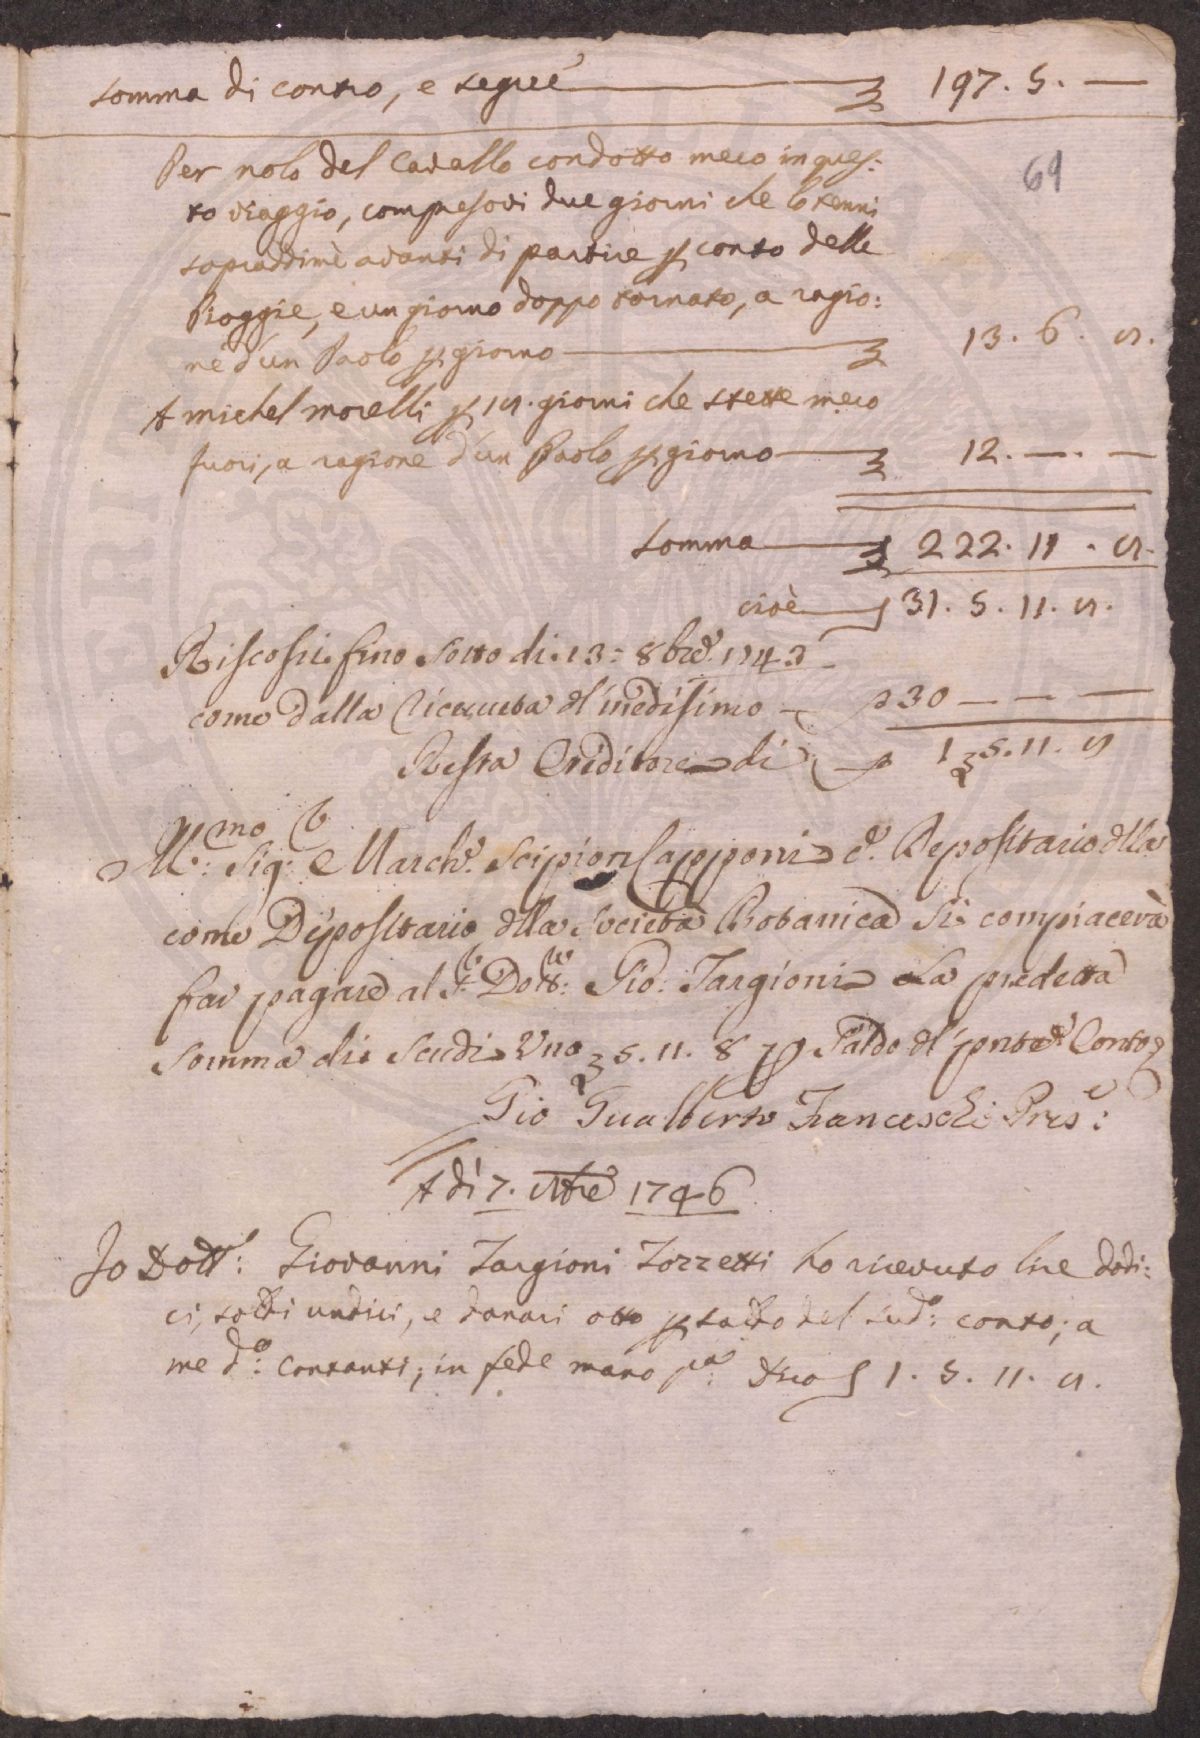 Somma di contro, e segue £ 197. 5. —
69
Per nolo del Cavallo condotto meco in ques-
to viaggio, compresovi due giorni che lo tenni
sopraddimè avanti di partire p conto delle
Pioggie, e un giorno doppo tornato, a ragio:
ne d'un Paolo p giorno £ 13. 6. 8.
A Michel Morelli p 18. giorni che stette meco
fuori, a ragione d'un Paolo p giorno £ 12. — . —
Somma £ 222. 11. 8.
cioè 31. 5. 11. 8.
Riscossi fino sotto di 13: 8bre 1743
come dalla ricevuta dl medesimo 30 — — —
Resta Creditore di 1 £ 5. 11. 8
Sig: March: Scipion Capponi Depositario dlla
come Depositario dlla Società Botanica Si compiacerà
far pagare al Sr Dottr: Gio: Targioni La predetta
somma di Scudi Uno £ 5. 11. 8 p Saldo dl pnte Conto
Gio Gualberto Franceschi Pres:
A dì 7. 8bre 1746
Io Dottr: Giovanni Targioni Tozzetti ho ricevuto lire dodi:
ci, soldi undici, e danari otto p saldo del sudo: conto; a
me do: contanti; in fede mano pa: dico 1. 5. 11. 8.